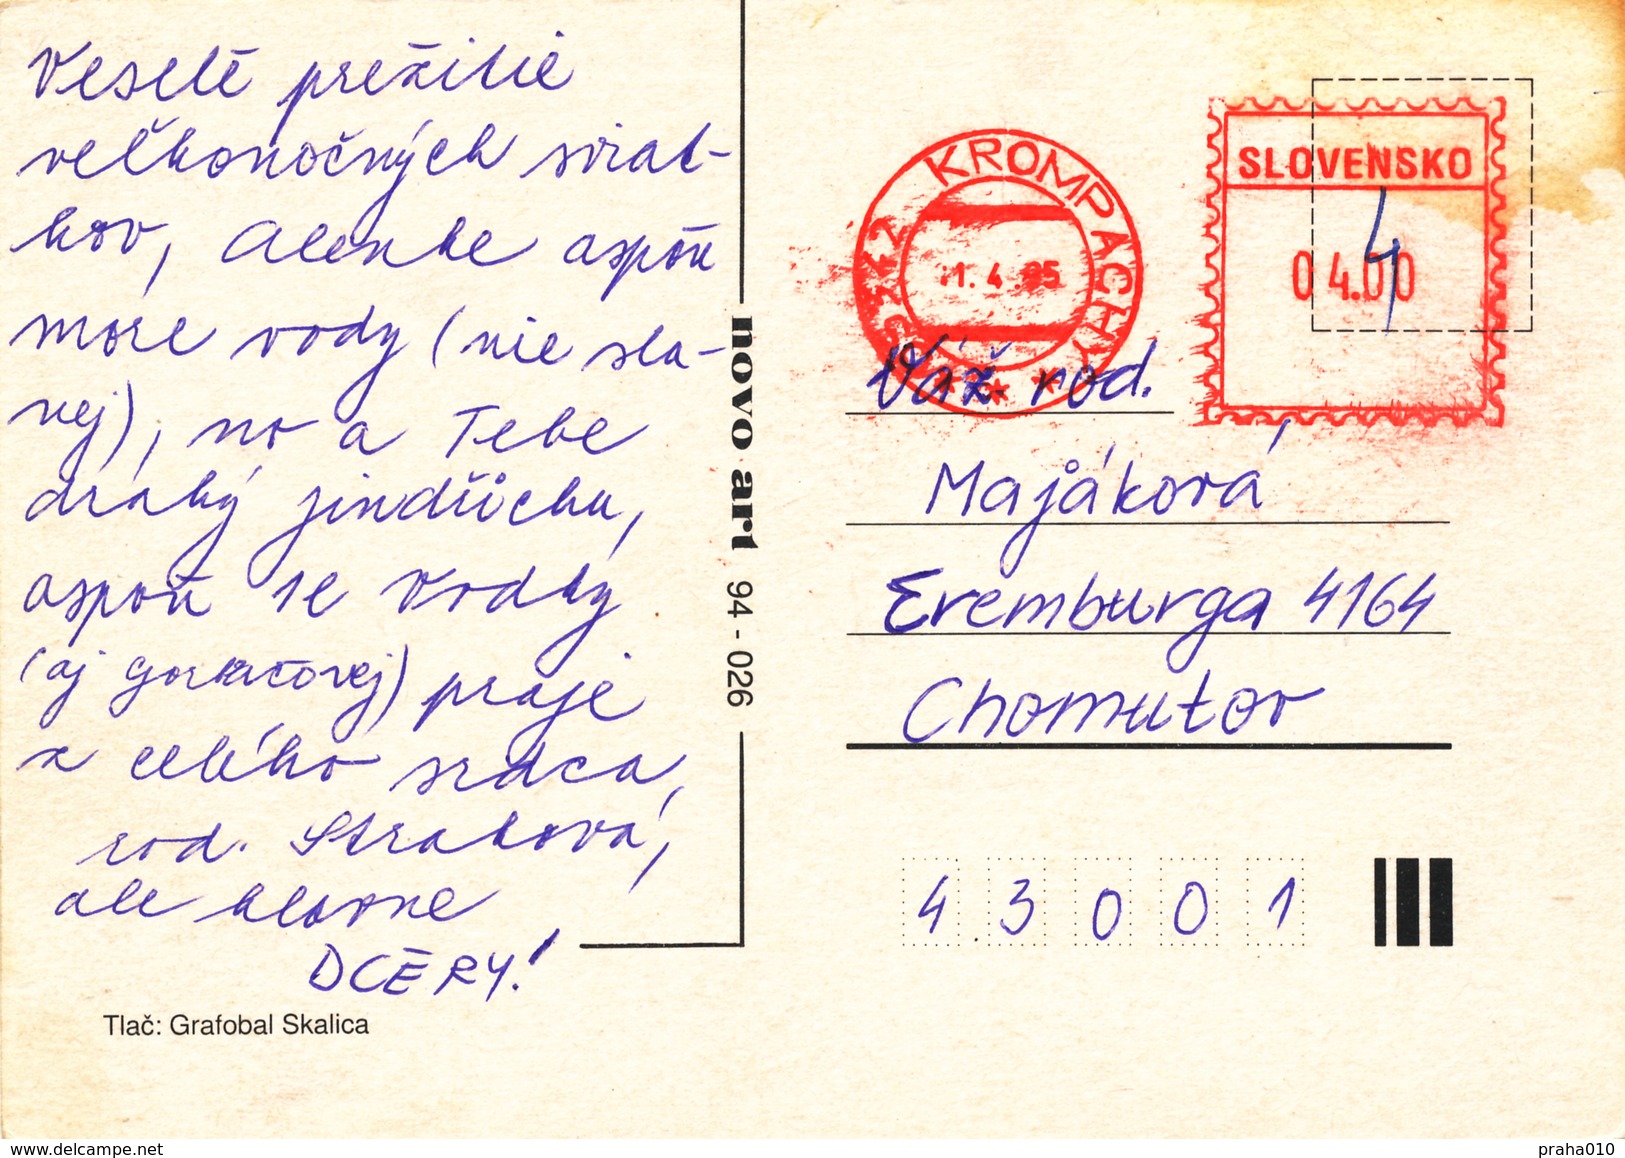 Veselé prežitie
veľkonočných sviat-
kov, Alenke aspoň
more vody (nie sla-
nej), no a Tebe
drahý Jindřichu,
aspoň 1l Vodky
(aj Gorbačovej) praje
z celého srdca,
rod. Straková,
ale hlavne
DCÉRY!
Tlač: Grafobal Skalica
novo art 94 - 026
KROMPACHY
053 42
1.4.95
SLOVENSKO
04.00
4
Váž. rod.
Majáková
Eremburga 4164
Chomutov
4 3 0 0 1
www.delcampe.net
praha010